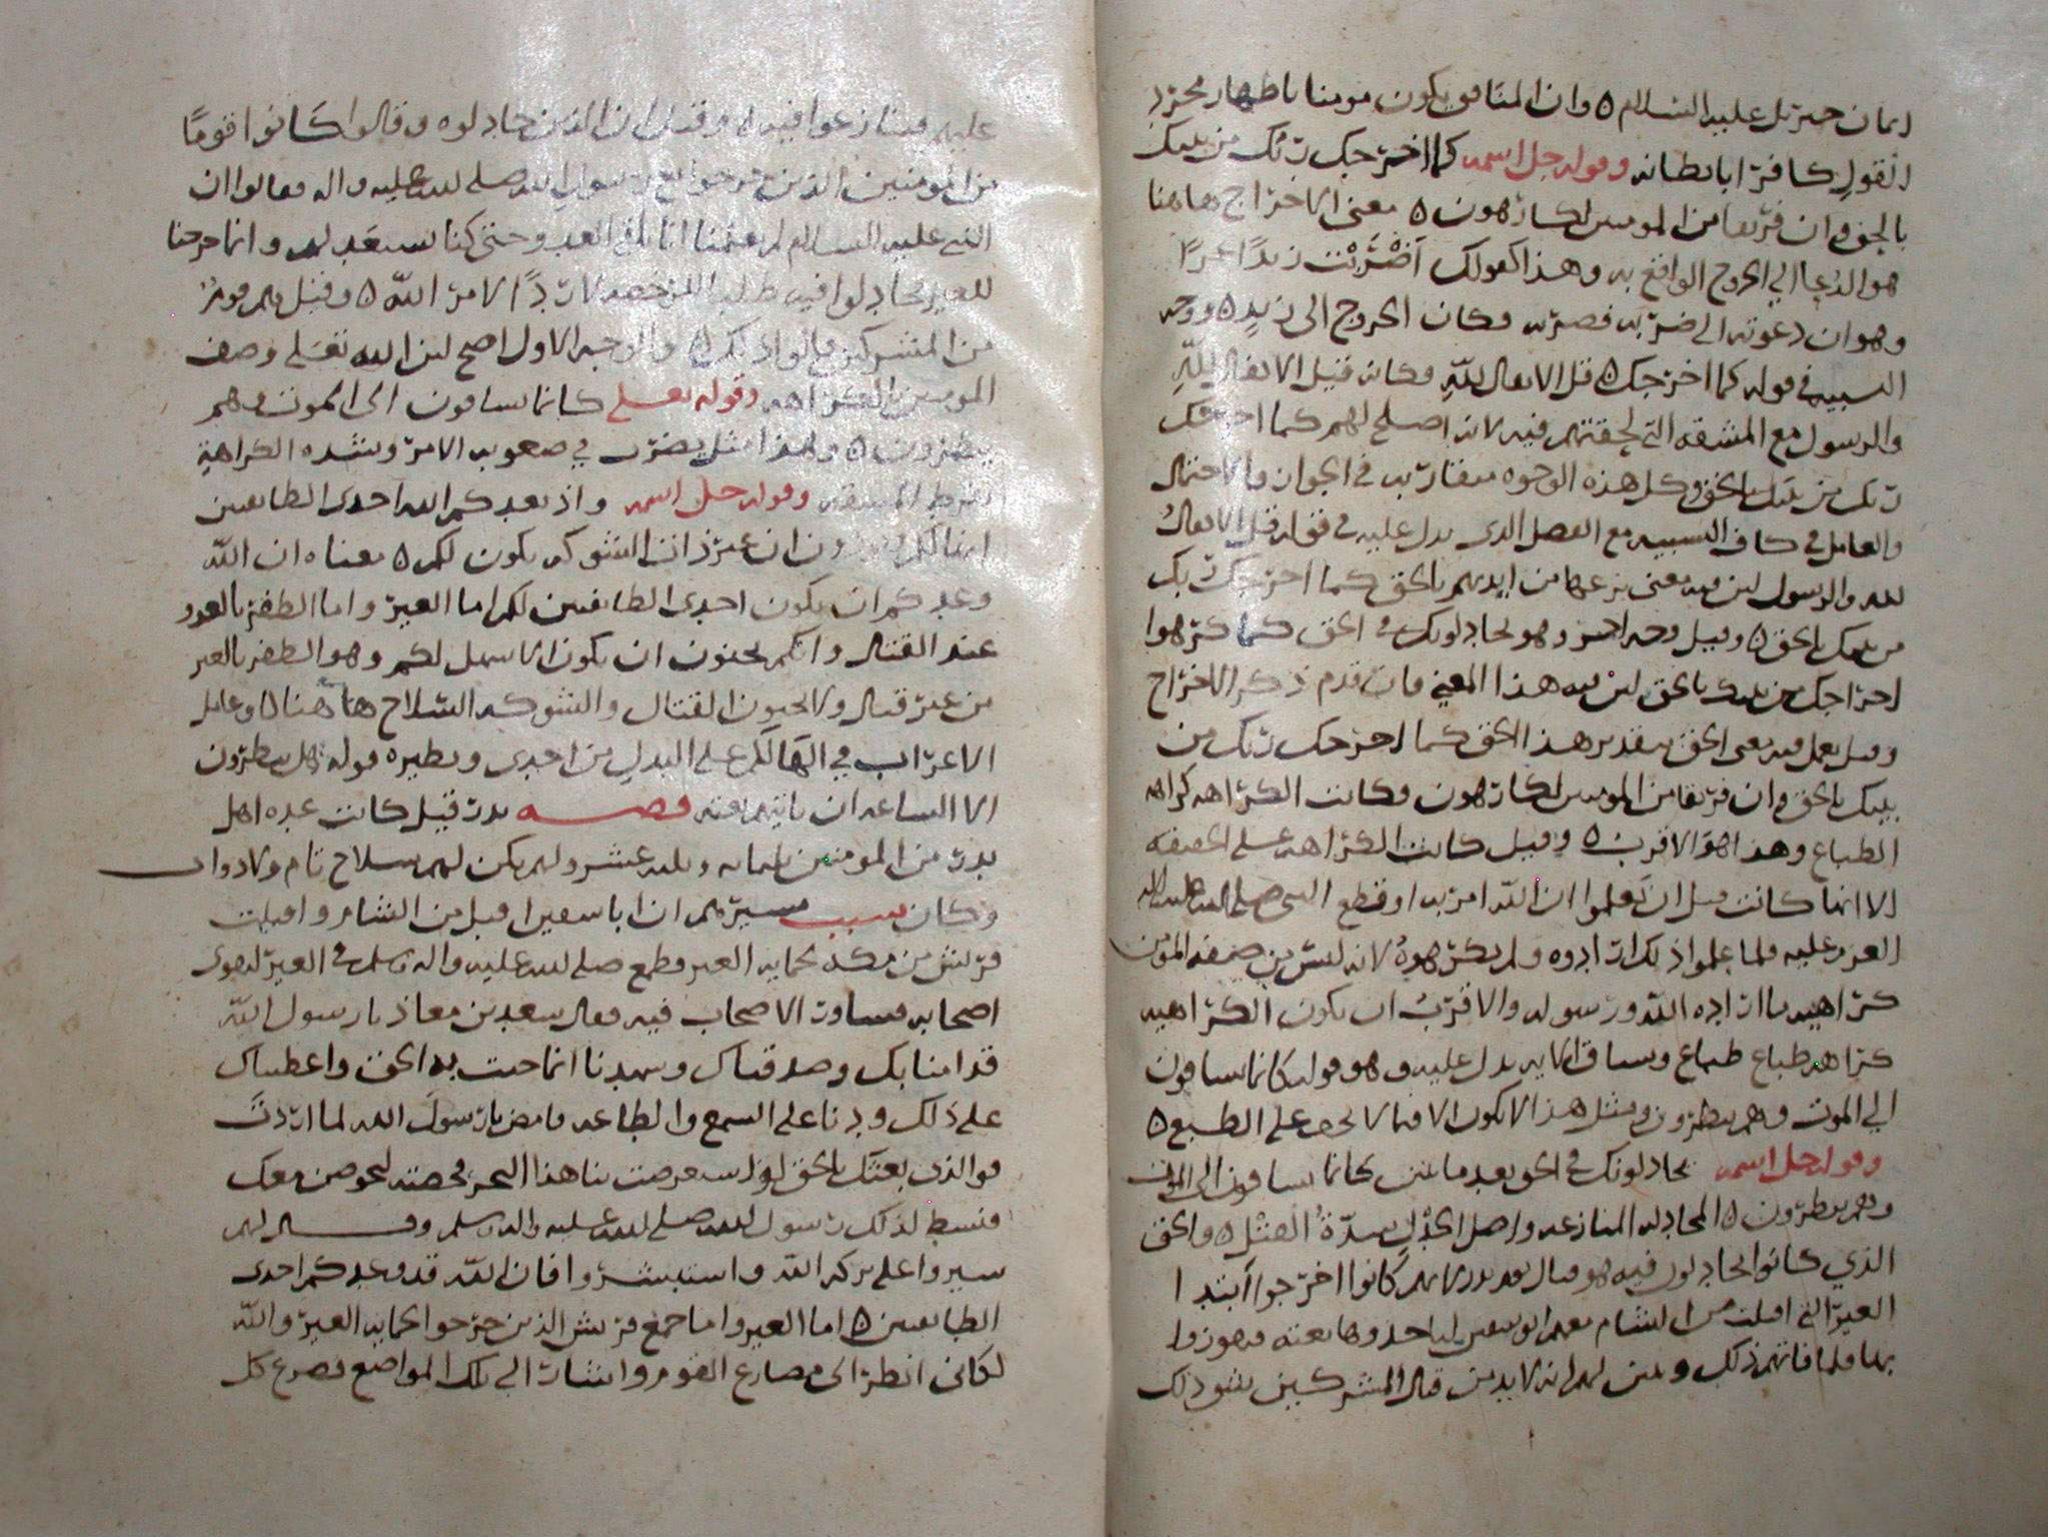 ايمان جبريل عليه السلام ٥ وان المنافق يكون مومنا باظهار مجرد
القول كافرا بابطانه وقوله جل اسمه كما اخرجك ربك من بيتك
بالحق وان فريقا من المومنين لكارهون ٥ معنى الاخراج هاهنا
هو الدعا الي الخروج الواقع به وهذا كقولك اضربت زيدا عمرا
وهو ان دعوته الى ضربه فضربه فكان الخروج الى زيد ٥ ووجه
التشبيه في قوله كما اخرجك ٥ قل الانفال لله فكانه قيل الانفال لله
والرسول مع المشقه التي لحقتهم فيه لانه اصلح لهم كما اخرجك
ربك من بيتك بالحق وكل هذه الوجوه متقاربه في الجواز والاحتمال
والعامل في كاف التشبيه مع الفصل الذي يدل عليه في قوله قل الانفال
لله والرسول لان فيه معنى نزعها من ايديهم بالحق كما اخرجك ربك
من بيتك بالحق ٥ وقيل وجه اخر وهو يجادلونك في الحق كما كرهوا
اخراجك من بيتك بالحق لان فيه هذا المعنى فان قدم ذكر الاخراج
وقيل يعمل فيه معنى الحق بتقدير هذا الحق كما اخرجك ربك من
بيتك بالحق وان فريقا من المومنين لكارهون فكانت الكراهه كراهه
الطباع وهذا هو الاقرب ٥ وقيل كانت الكراهه على الحقيقه
الا انها كانت قبل ان يعلموا ان الله امر به او قطع النبي صلى الله عليه واله
العزم عليه فلما علموا ذلك ارادوه ولم يكرهوه لانه ليس من صفه المومن
كراهيه ما اراده الله ورسوله والاقرب ان يكون الكراهيه
كراهه طباع وسياق الايه يدل عليه وهو قوله كانما يساقون
الي الموت وهم ينظرون ومثل هذا لا يكون الا فيما لا يخف على الطبع ٥
وقوله جل اسمه يجادلونك في الحق بعد ما تبين كانما يساقون الى الموت
وهم ينظرون ٥ المجادله المنازعه واصل الجدل شدة الفتل ٥ والحق
الذي كانوا يجادلون فيه هو قتال يوم بدر لانهم كانوا اخرجوا ابتدا
العير التي اقبلت من الشام معهم ابو سفين لياخذوها بغته فيفوزوا
بها فلما فاتهم ذلك وتبين لهم انه لابد من قتال المشركين شق ذلك
عليهم فتنازعوا فيه ٥ وقيل ان الذين جادلوه وقالوا كانوا قوما
من المومنين الذين خرجوا مع رسول الله صلى الله عليه واله فقالوا ان
النبي عليه السلام لم يعلمنا انا نلقى العدو حتى كنا نستعد لهم وانما خرجنا
للعير يجادلوا فيه طلبا للرخصه لا ردا لامر الله ٥ وقيل هم قوم
من المشركين قالوا ذلك ٥ والوجه الاول اصح لان الله تعلى وصف
المومنين بالكراهه وقوله تعلى كانما يساقون الى الموت وهم
ينظرون ٥ وهذا مثل يضرب في صعوبه الامر وشده الكراهة
لفرط المشقه وقوله جل اسمه واذ يعدكم الله احدى الطايفتين
انها لكم وتودون ان غير ذات الشوكه يكون لكم ٥ معناه ان الله
وعدكم ان يكون احدى الطايفتين لكم اما العير واما الظفر بالعدو
عند القتال وانكم تحبون ان يكون الاسهل لكم وهو الظفر بالعير
من غير قتال ولا تحبون القتال والشوكه السلاح هاهنا ٥ وعامل
الاعراب في انها لكم على البدل من احدى ونظيره قوله هل ينظرون
الا الساعه ان تاتيهم بغته قصه بدر قيل كانت عده اهل
بدر من المومنين ثلثمايه وثلثه عشر ولم يكن لهم سلاح تام ولا دواب
وكان سبب مسيرهم ان ابا سفين اقبل من الشام واقبلت
قريش من مكه لحمايه العير فطمع صلى الله عليه واله وسلم في العير ليقوى
اصحابه فشاور الاصحاب فيه فقال سعد بن معاذ يا رسول الله
قد امنا بك وصدقناك وشهدنا انما جيت به الحق واعطيناك
على ذلك عهودنا على السمع والطاعه فامض يا رسول الله لما اردت
فوالذي بعثك بالحق لو استعرضت بنا هذا البحر فخضته لخضناه معك
فنشط لذلك رسول الله صلى الله عليه واله وسلم وقال لهم
سيروا على بركه الله واستبشروا فان الله قد وعدكم احدى
الطايفتين ٥ اما العير واما جمع قريش الذين خرجوا لحمايه العير والله
لكاني انظر الى مصارع القوم واشار الى تلك المواضع فصرع كل